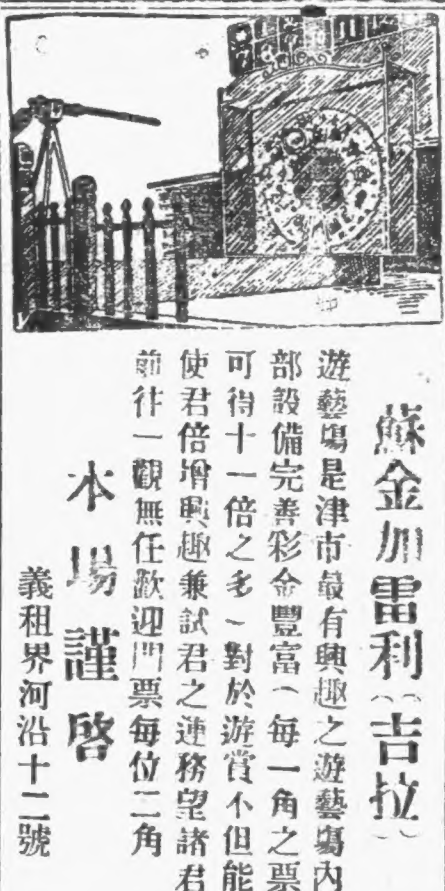 蘇金加雷利（吉拉）
遊藝塲是津市最有興趣之遊藝塲內
部設備完善彩金豐富（每一角之票
可得十一倍之多）對於游賞不但能
使君倍增興趣兼試君之運務望諸君
前往一觀無任歡迎門票每位二角
本塲謹啓
義租界河沿十二號